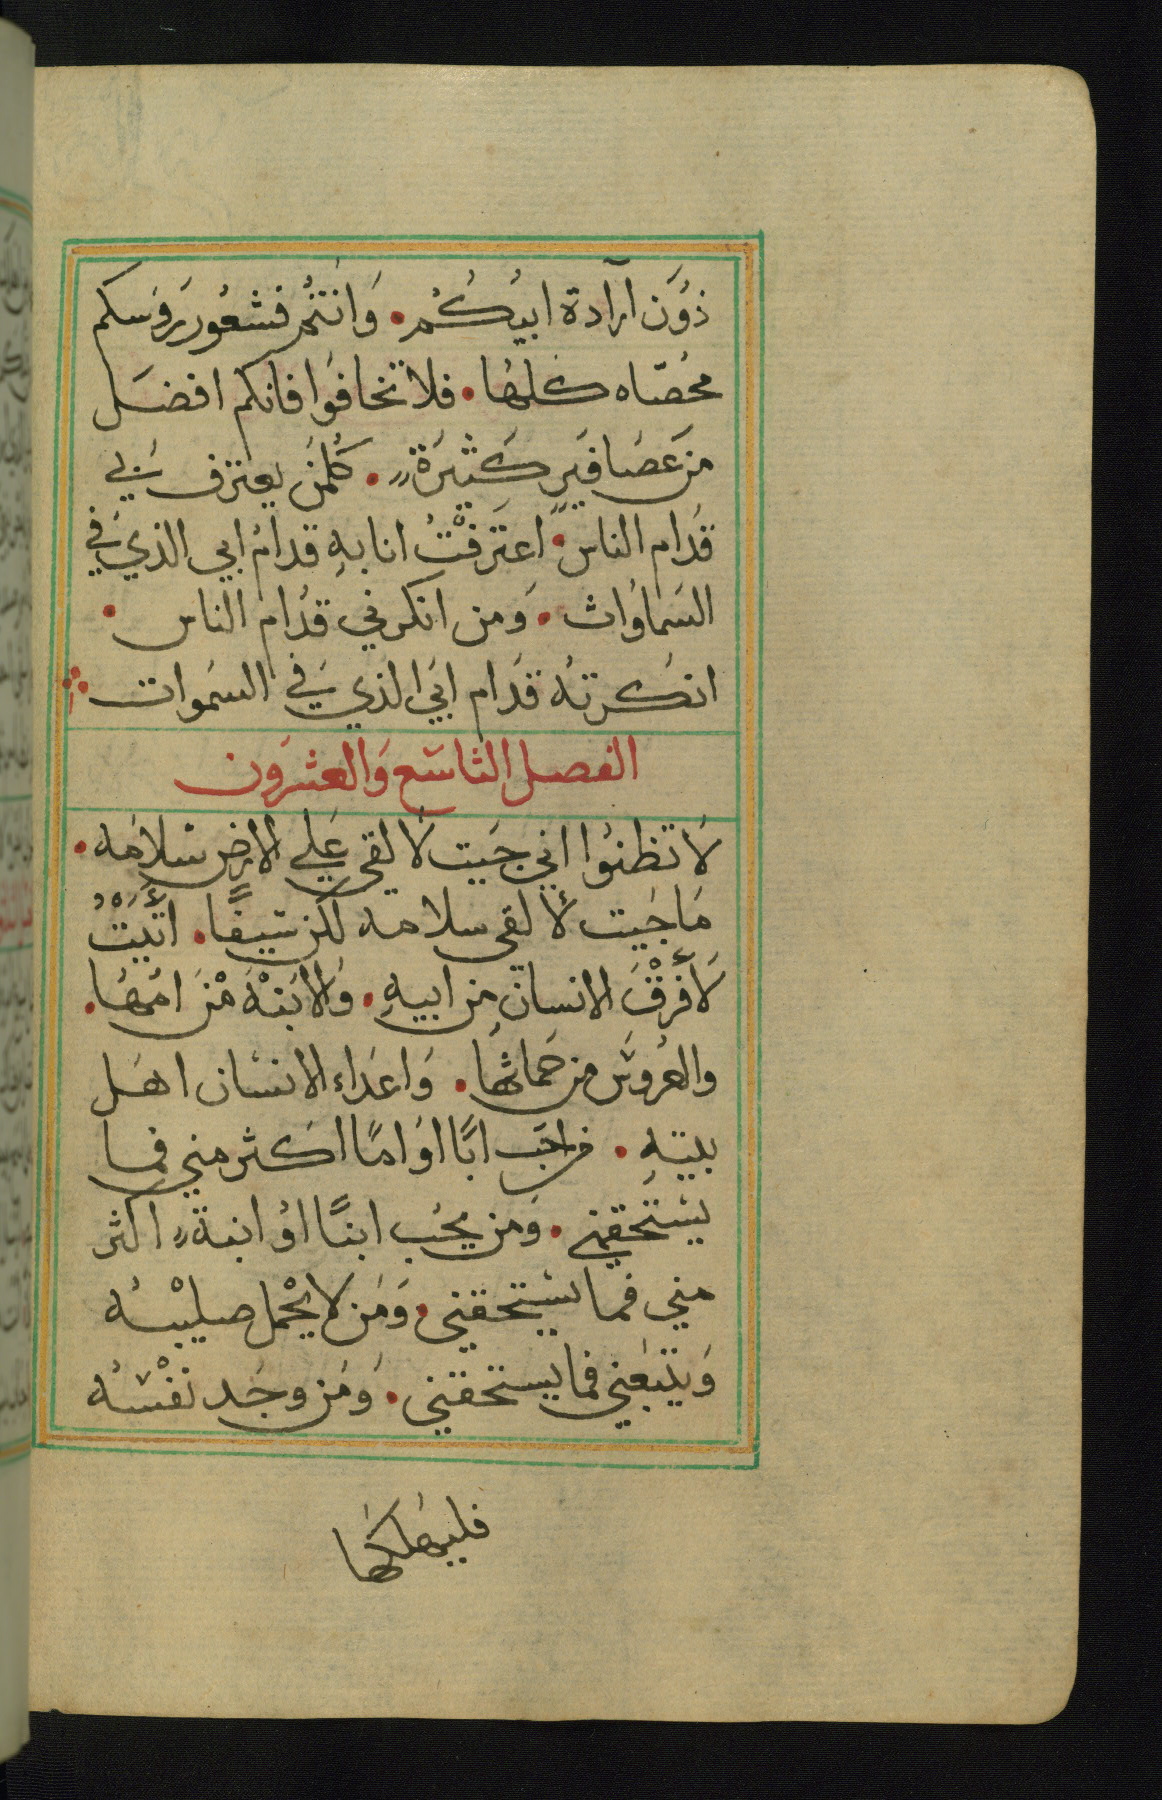 ذُوُن اراَدة ابيُكُم. وَانتُمُ فشعُور رَوسَكم
محُصّاه كلهُا. فلا تخافوُا فانكم افضَل
مَن عَصَافيَرٍ كَثيَرَةٍ. كُلمَن يعترف بيَ
قدَام الناس. اعتَرفتُ انا بهِ قدامُ ابي الذيَ في
السَماوُاث. وَمن انكرني قدُام الناس.
انكرتهُ قدَام ابيَ الذيَ في السَموات
الفصل التاسَع وَالعشرَون
لَا تظنوُا اني جَيت لَالقي عَلي الارضِ سَلامَه.
مَا جَيت لألقي سلامه لكن سَيفًا. اتَيَتُ
لَأفَرقَ الانسان من ابيهِ. وَالابنهَ مَنَ امُهَا.
والعُروسَ من حمَاثهَا. وَاعدَاء الانسَان اهَل
بيتهِ. فمن احَب ابًا اوَ امًا اكثر مني فما
يسَتحقني. وَمن يحُب ابنًا اوُ ابنةً اكثر
مني فما يسَتحقني. وَمَن لا يحْمل صَليبْهُ
وَيتبعَني فما يستحقني. وَمَن وجَد نفْسَهُ
فليهلكها